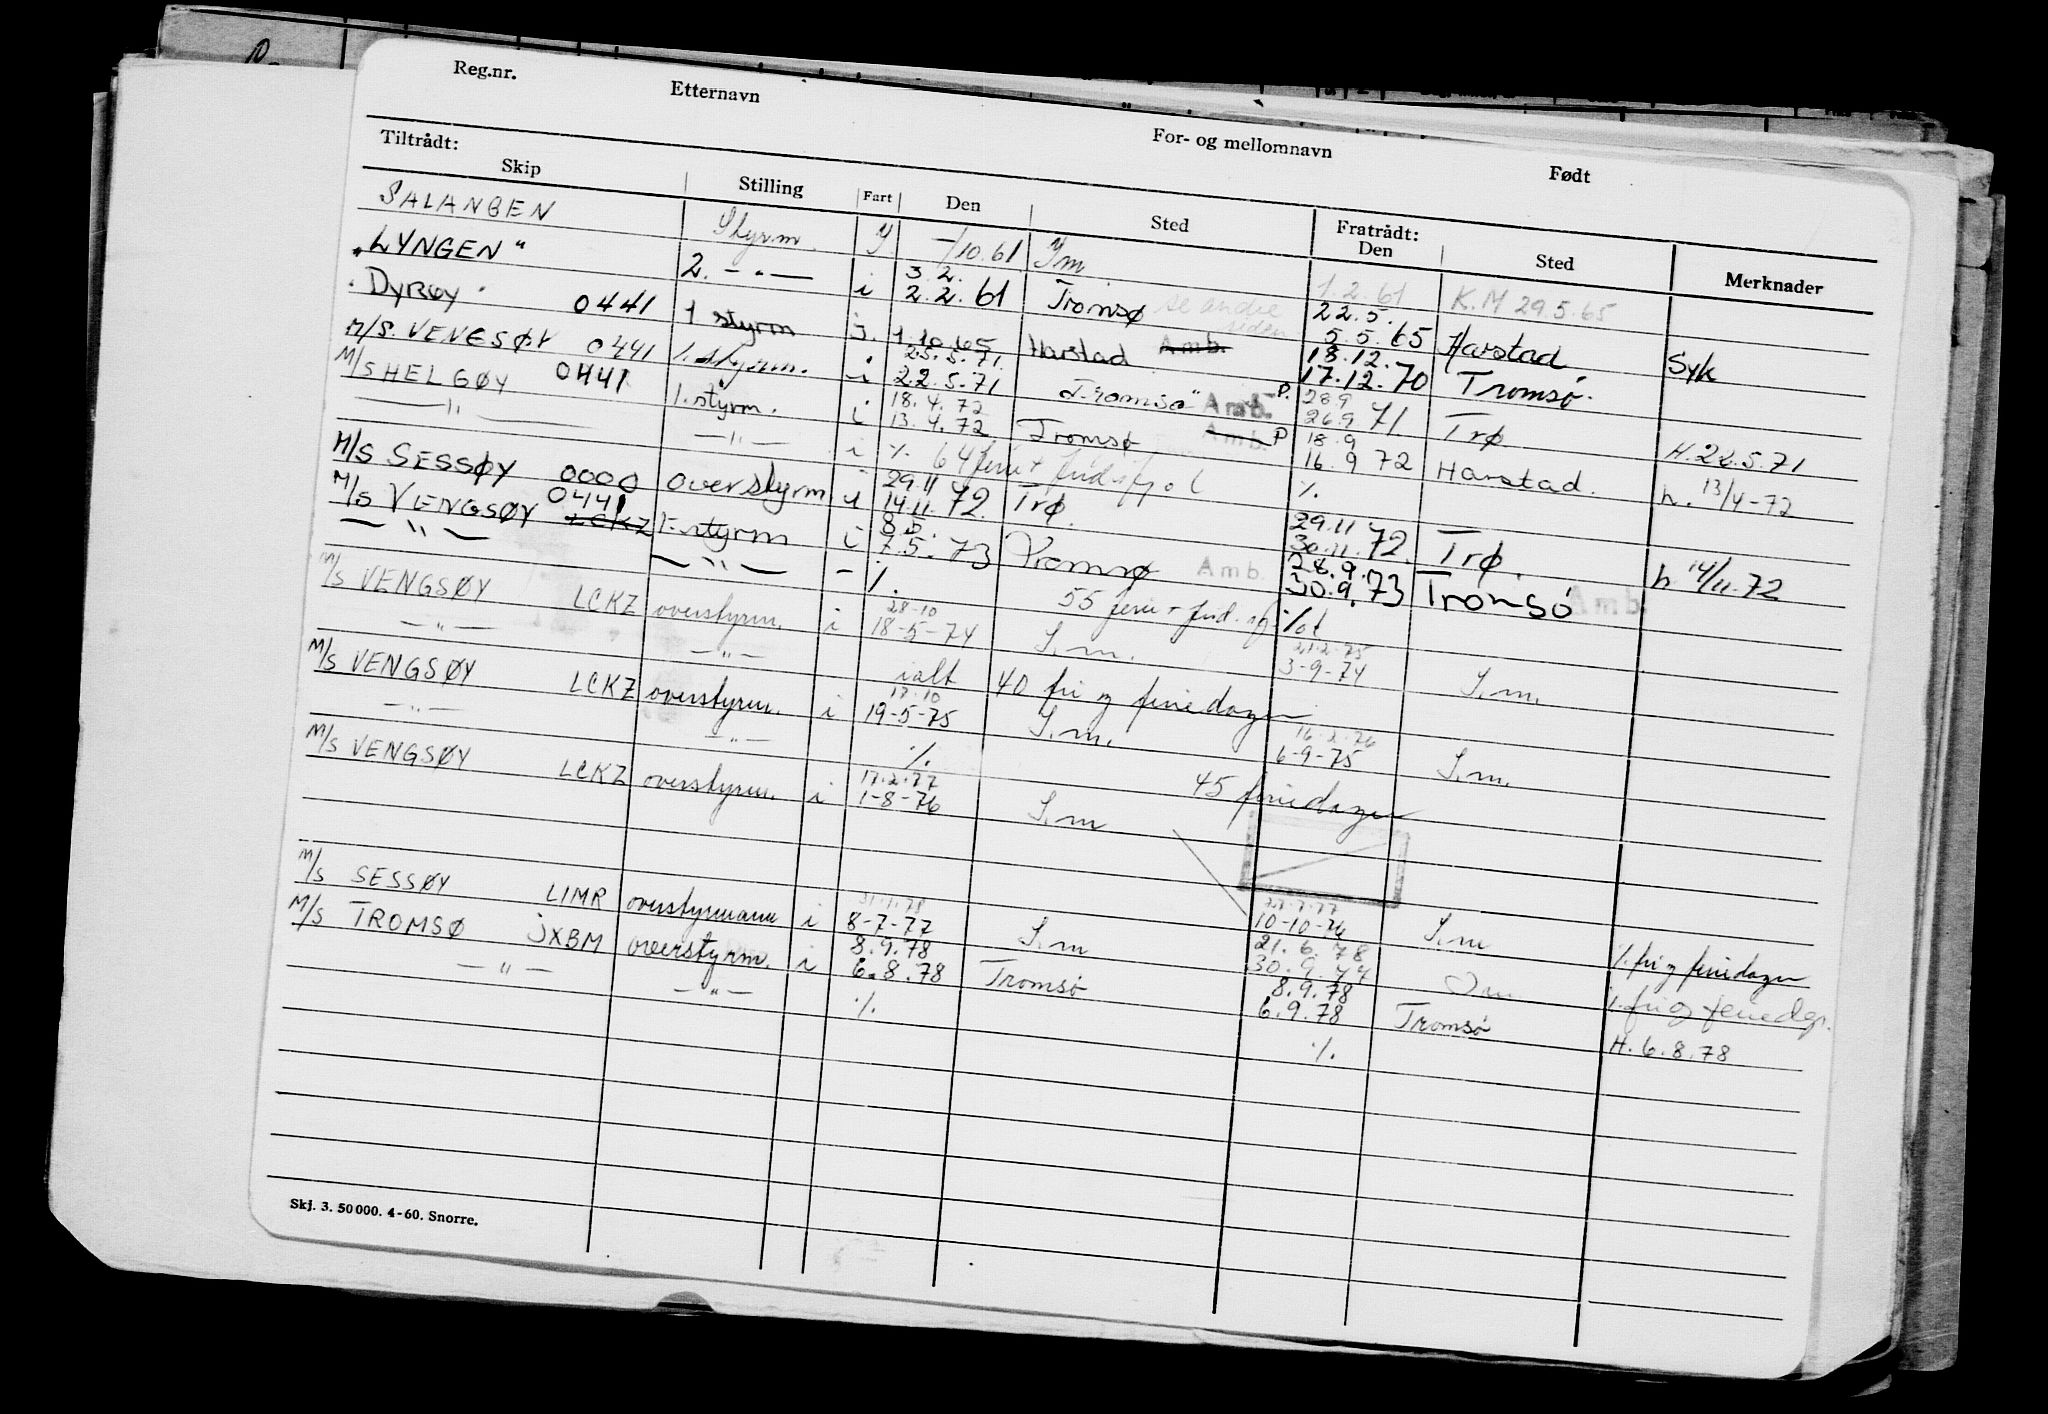 Reg.nr. Etternavn For- og mellomnavn Født
Tiltrådt: Fratrådt:
Skip Stilling Fart Den Sted Den Sted Merknader
SALANGEN Styrm. Y -/10.61 Ym 1.2.61 K.M 29.5.65
"LYNGEN" 2. -"- i 3.2. 2.2.61 Tromsø se andre siden 22.5. 5.5.65 Harstad Syk
"DYRØY" 0441 1 styrm i. 1.10.65 Harstad Amb. 18.12. 17.12.70 Tromsø.
M/S. VENGSØY 0441 1. styrm. i 25.5.71. 22.5.71 Tromsø" Amb. P. 28.9 26.9 71 Trø H. 22.5.71
M/S HELGØY 0441 1. styrm. i 18.4.72 13.4.72 Tromsø Amb. P 18.9 16.9 72 Harstad. h. 13/4-72
—"— —"— i %. 64 ferie + %.
M/S SESSØY 0000 Overstyrm i 29.11 14.11.72. Trø. 29.11 30.11.72. Trø. h 14/11.72
M/S VENGSØY 0441 LCKZ 1. styrm i 8.5. 7.5.73 Tromsø Amb. 28.9. 30.9.73 Tromsø Amb.
—"— —"— - %. 55 ferie +
M/S VENGSØY LCKZ overstyrm. i 28-10 18-5-74 S.m. 21.2.75 3-9-74 S.m.
—"— —"— ialt 40 fri og feriedager
M/S VENGSØY LCKZ overstyrm. i 17.10 19-5-75 S.m. 16.2.76 6-9-75 S.m.
—"— —"— %. 45 feriedager
M/S VENGSØY LCKZ overstyrm. i 17.2.77 1-8-76 S.m 27.7.77 10-10-76 S.m %. fri og feriedager
M/S SESSØY LIMR overstyrmann i 31.7.78 8-7-77 S.m 21.6.78 30.9.77 %. fri og feriedgr.
M/S TROMSØ JXBM overstyrm. i 8.9.78 6.8.78 Tromsø 8.9.78 6.9.78 Tromsø H. 6.8.78
—"— —"— %. %.
Skj. 3. 50 000. 4-60. Snorre.